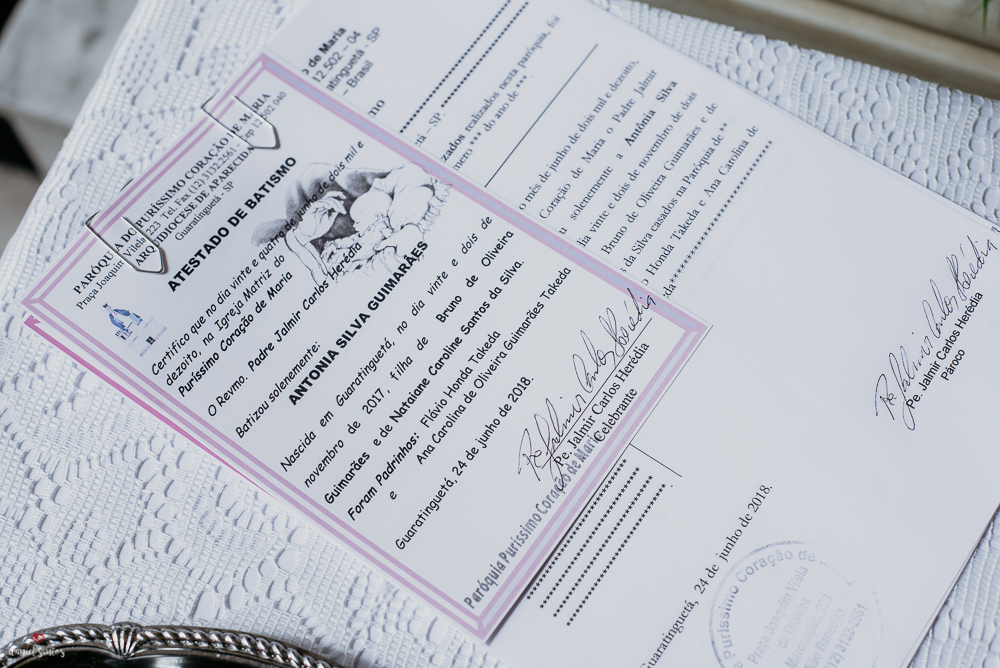 PARÓQUIA DO PURÍSSIMO CORAÇÃO DE MARIA
Praça Joaquim Vilela 223 Tel. Fax (12) 3132.2561 - Cep 12.502.040
ARQUIDIOCESE DE APARECIDA
Guaratinguetá - SP
ATESTADO DE BATISMO
Certifico que no dia vinte e quatro de junho de dois mil e
dezoito, na Igreja Matriz do
Puríssimo Coração de Maria
O Revmo. Padre Jalmir Carlos Herédia
Batizou solenemente:
ANTONIA SILVA GUIMARÃES
Nascida em Guaratinguetá, no dia vinte e dois de
novembro de 2017, filha de Bruno de Oliveira
Guimarães e de Nataiane Caroline Santos da Silva.
Foram Padrinhos: Flávio Honda Takeda
e Ana Carolina de Oliveira Guimarães Takeda
Guaratinguetá, 24 de junho de 2018.
Pe Jalmir Carlos Herédia
Pe. Jalmir Carlos Herédia
Celebrante
Paróquia Puríssimo Coração de Maria
o de Maria
12.502 – 04
atinguetá - SP
– Brasil
izados realizados nesta paróquia, foi
mero *** do ano de **
o mês de junho de dois mil e dezoito,
Coração de Maria o Padre Jalmir
u solenemente a Antônia Silva
dia vinte e dois de novembro de dois
Bruno de Oliveira Guimarães e de
s da Silva casados na Paróquia de **
Honda Takeda e Ana Carolina de
Pe Jalmir Carlos Herédia
Pe. Jalmir Carlos Herédia
Pároco
Guaratinguetá, 24 de junho de 2018.
Puríssimo Coração de
daniel santos